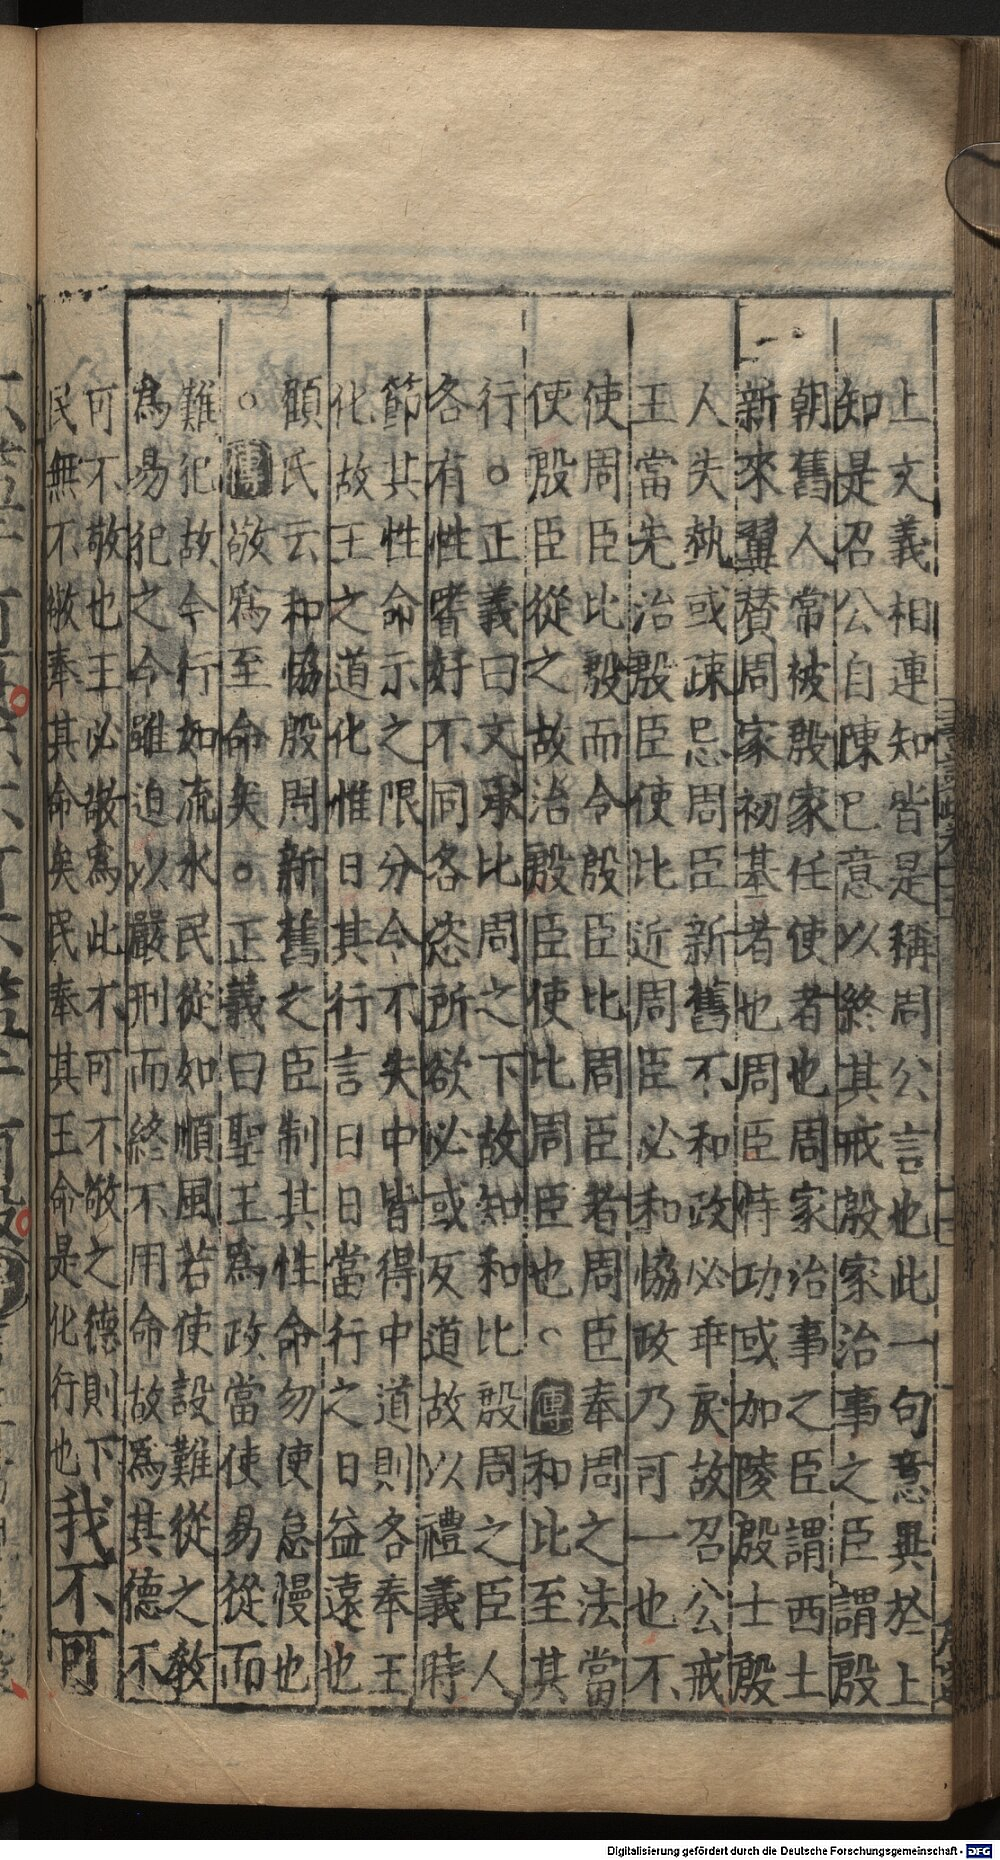 上文義相連知皆是稱周公言也此一句意異於上
知是召公自陳已意以終其戒殷家治事之臣謂殷
朝舊人常被殷家任使者也周家治事之臣謂西土
新來翼賛周家初基者也周臣恃功或加陵殷士殷
人失埶或疎忌周臣新舊不和政必乖戾故召公戒
王當先治殷臣使比近周臣必和協政乃可一也不
使周臣比殷而令殷臣比周臣者周臣奉周之法當
使殷臣從之故治殷臣使比周臣也○傳和比至其
行○正義曰文承比周之下故知和比殷周之臣人
各有性嗜好不同各恣所欲必或反道故以禮義時
節其性命示之限分令不失中皆得中道則各奉王
化故王之道化惟日其行言日日當行之日益遠也
顧氏云和協殷周新舊之臣制其性命勿使怠慢也
○傳敬爲至命矣○正義曰聖王爲政當使易從而
難犯故令行如流水民從如順風若使設難從之教
爲易犯之令雖迫以嚴刑而終不用命故爲其德不
可不敬也王必敬爲此不可不敬之德則下
民無不敬奉其命矣民奉其王命是化行也
我不可
Digitalisierung gefördert durch die Deutsche Forschungsgemeinschaft - DFG